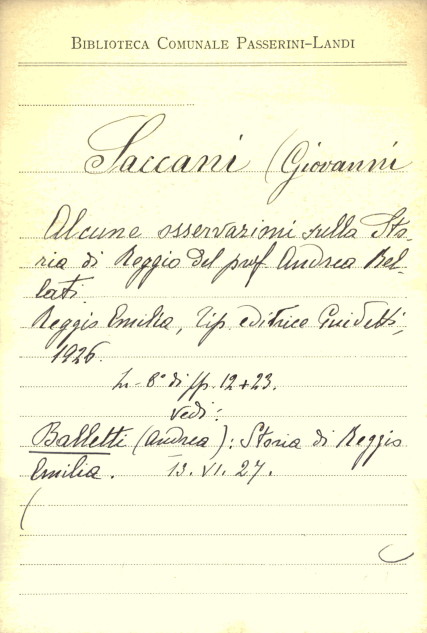 BIBLIOTECA COMUNALE PASSERINI-LANDI
Saccani (Giovanni
Alcune osservazioni sulla Sto-
ria di Reggio del prof. Andrea Bal-
lati.
Reggio Emilia, Tip. editrice Guidetti,
1926.
In-8° di pp. 12+23.
vedi:
Balletti (Andrea): Storia di Reggio
Emilia. 13.VI.27.